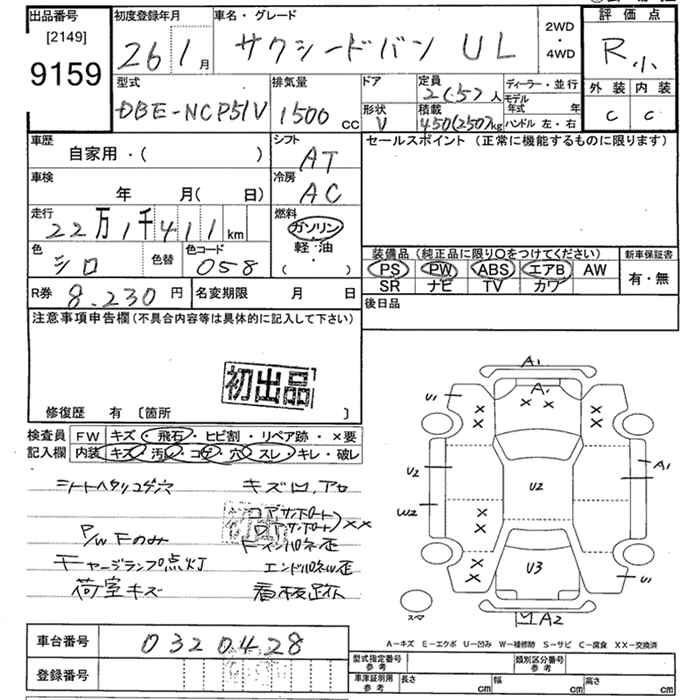 出品番号
[2149]
9159
初度登録年月
26 1月
車名・グレード
サクシードバン UL
2WD
・
4WD
評価点
R小
外装 内装
C C
型式
DBE-NCP51V
排気量
1500 cc
ドア
形状
V
定員
2(5)人
積載
450(250)kg
ディーラー・並行
モデル
年式 年
ハンドル 左・右
車歴
自家用・( )
シフト
AT
セールスポイント (正常に機能するものに限ります)
車検
年 月( 日)
冷房
AC
走行
22万1千411km
燃料
ガソリン
軽・油
( )
色
シロ
色替
色コード
058
装備品(純正品に限り○をつけてください)
PS PW ABS エアB AW
SR ナビ TV カワ
新車保証書
有・無
R券 8.230円
名変期限 月 日
後日品
注意事項申告欄(不具合内容等は具体的に記入して下さい)
初出品
修復歴 有 〔箇所 〕
検査員
記入欄
FW キズ・飛石・ヒビ割・リペア跡・×要
内装 キズ・汚・コゲ・穴・スレ・キレ・破レ
シートヘタリコゲ穴
キズ凹、アセ
P/W Fのみ
チャージランプ点灯
荷室キズ
コアサポート
ロアサポート)××
Fインパネ歪
エンドパネ歪
看板跡
A1
A1
U1
× ×
× ×
× ×
U2
A1
U2
W2
×
×
×
×
U3
U1
スマ
A2
A-キズ E-エクボ U-凹み W-補修跡 S-サビ C-腐食 ××-交換済
車台番号
0320428
登録番号
型式指定番号
参考
類別区分番号
参考
車庫証明用
参考
長さ cm
幅 cm
高さ cm